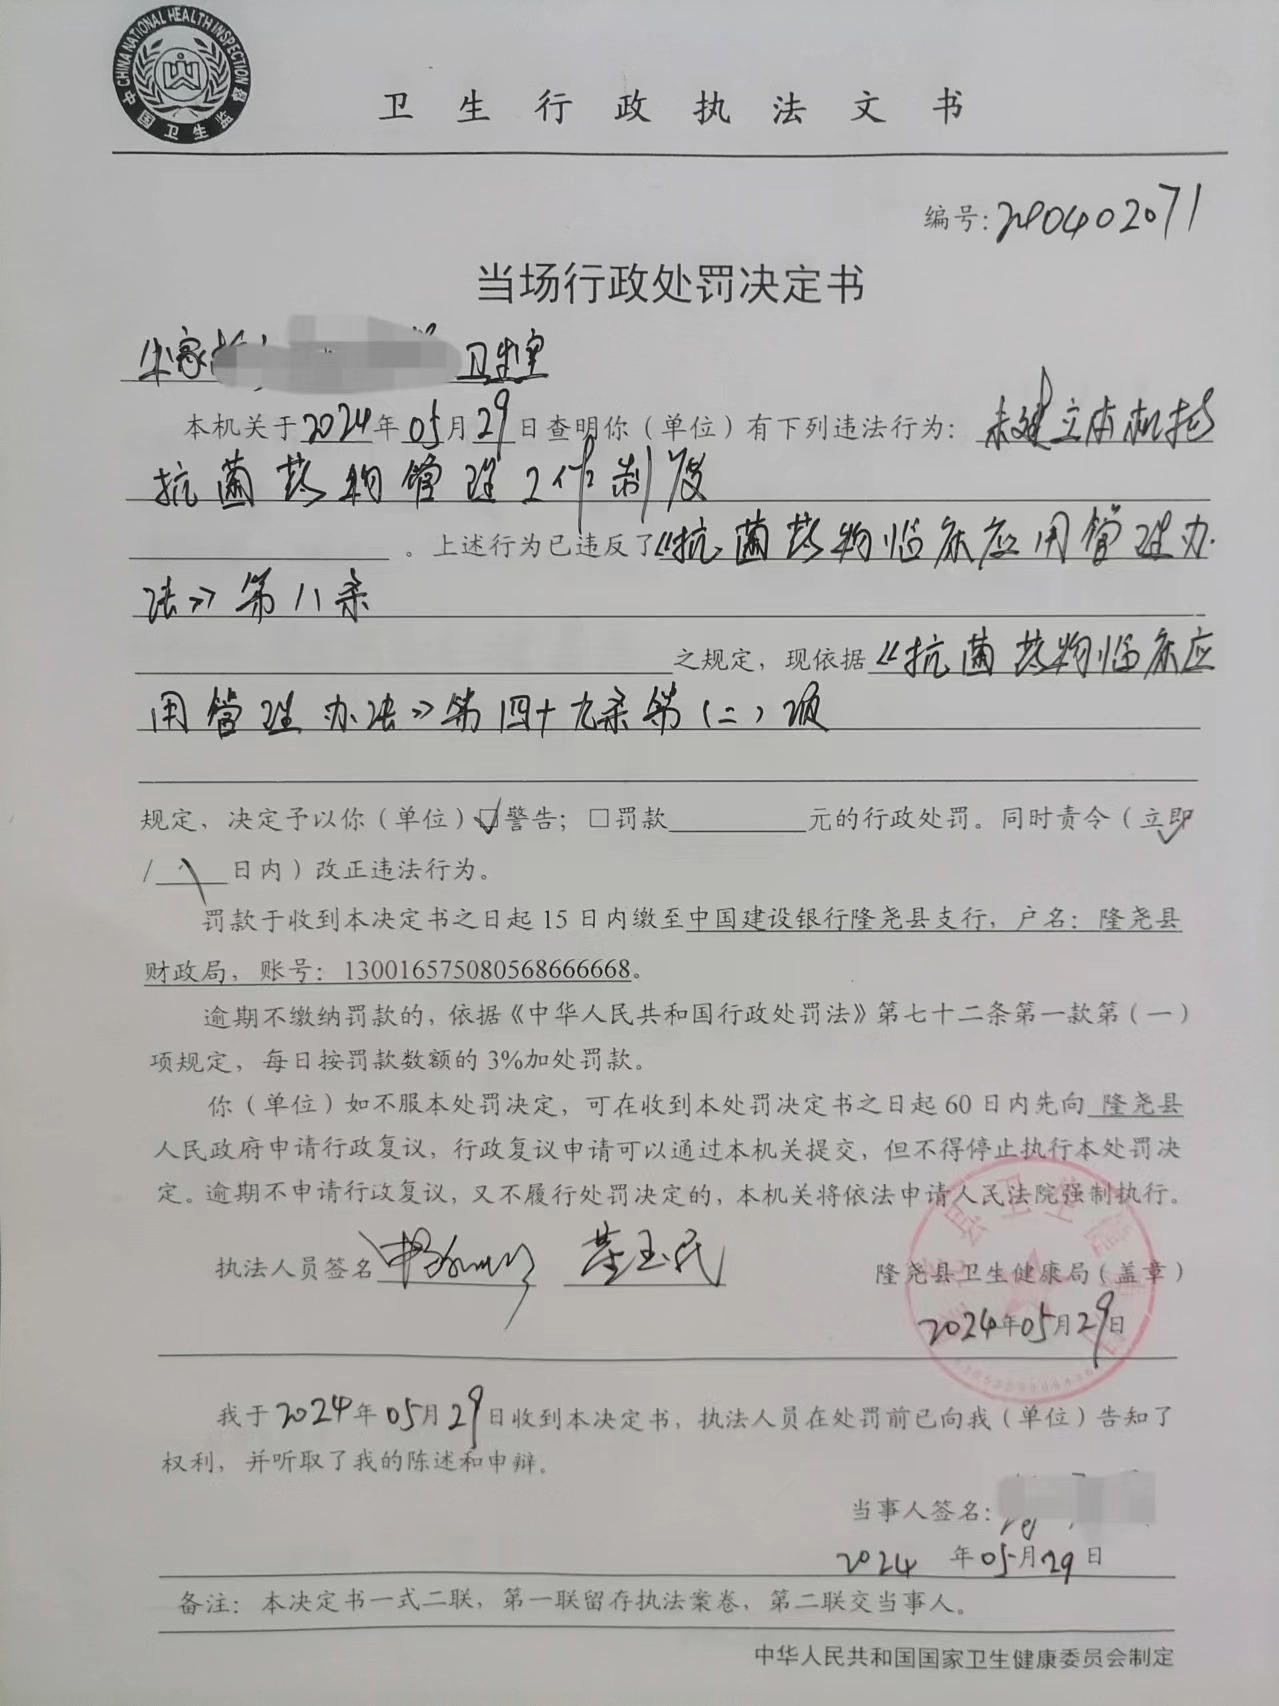 CHINA NATIONAL HEALTH INSPECTION
中国卫生监督
卫生行政执法文书
编号:240402071
当场行政处罚决定书
卫生室
本机关于2024年05月29日查明你（单位）有下列违法行为：未建立本机构
抗菌药物管理工作制度
。上述行为已违反了《抗菌药物临床应用管理办
法》第八条
之规定，现依据《抗菌药物临床应
用管理办法》第四十九条第（二）项
规定，决定予以你（单位）☑警告；□罚款元的行政处罚。同时责令（立即
/日内）改正违法行为。
罚款于收到本决定书之日起 15 日内缴至中国建设银行隆尧县支行，户名：隆尧县
财政局，账号：13001657508056866668。
逾期不缴纳罚款的，依据《中华人民共和国行政处罚法》第七十二条第一款第（一）
项规定，每日按罚款数额的 3%加处罚款。
你（单位）如不服本处罚决定，可在收到本处罚决定书之日起 60 日内先向 隆尧县
人民政府申请行政复议，行政复议申请可以通过本机关提交，但不得停止执行本处罚决
定。逾期不申请行政复议，又不履行处罚决定的，本机关将依法申请人民法院强制执行。
执法人员签名
隆尧县卫生健康局（盖章）
2024年05月29日
我于2024年05月29日收到本决定书，执法人员在处罚前已向我（单位）告知了
权利，并听取了我的陈述和申辩。
当事人签名：
2024 年05月29日
备注：本决定书一式二联，第一联留存执法案卷，第二联交当事人。
中华人民共和国国家卫生健康委员会制定